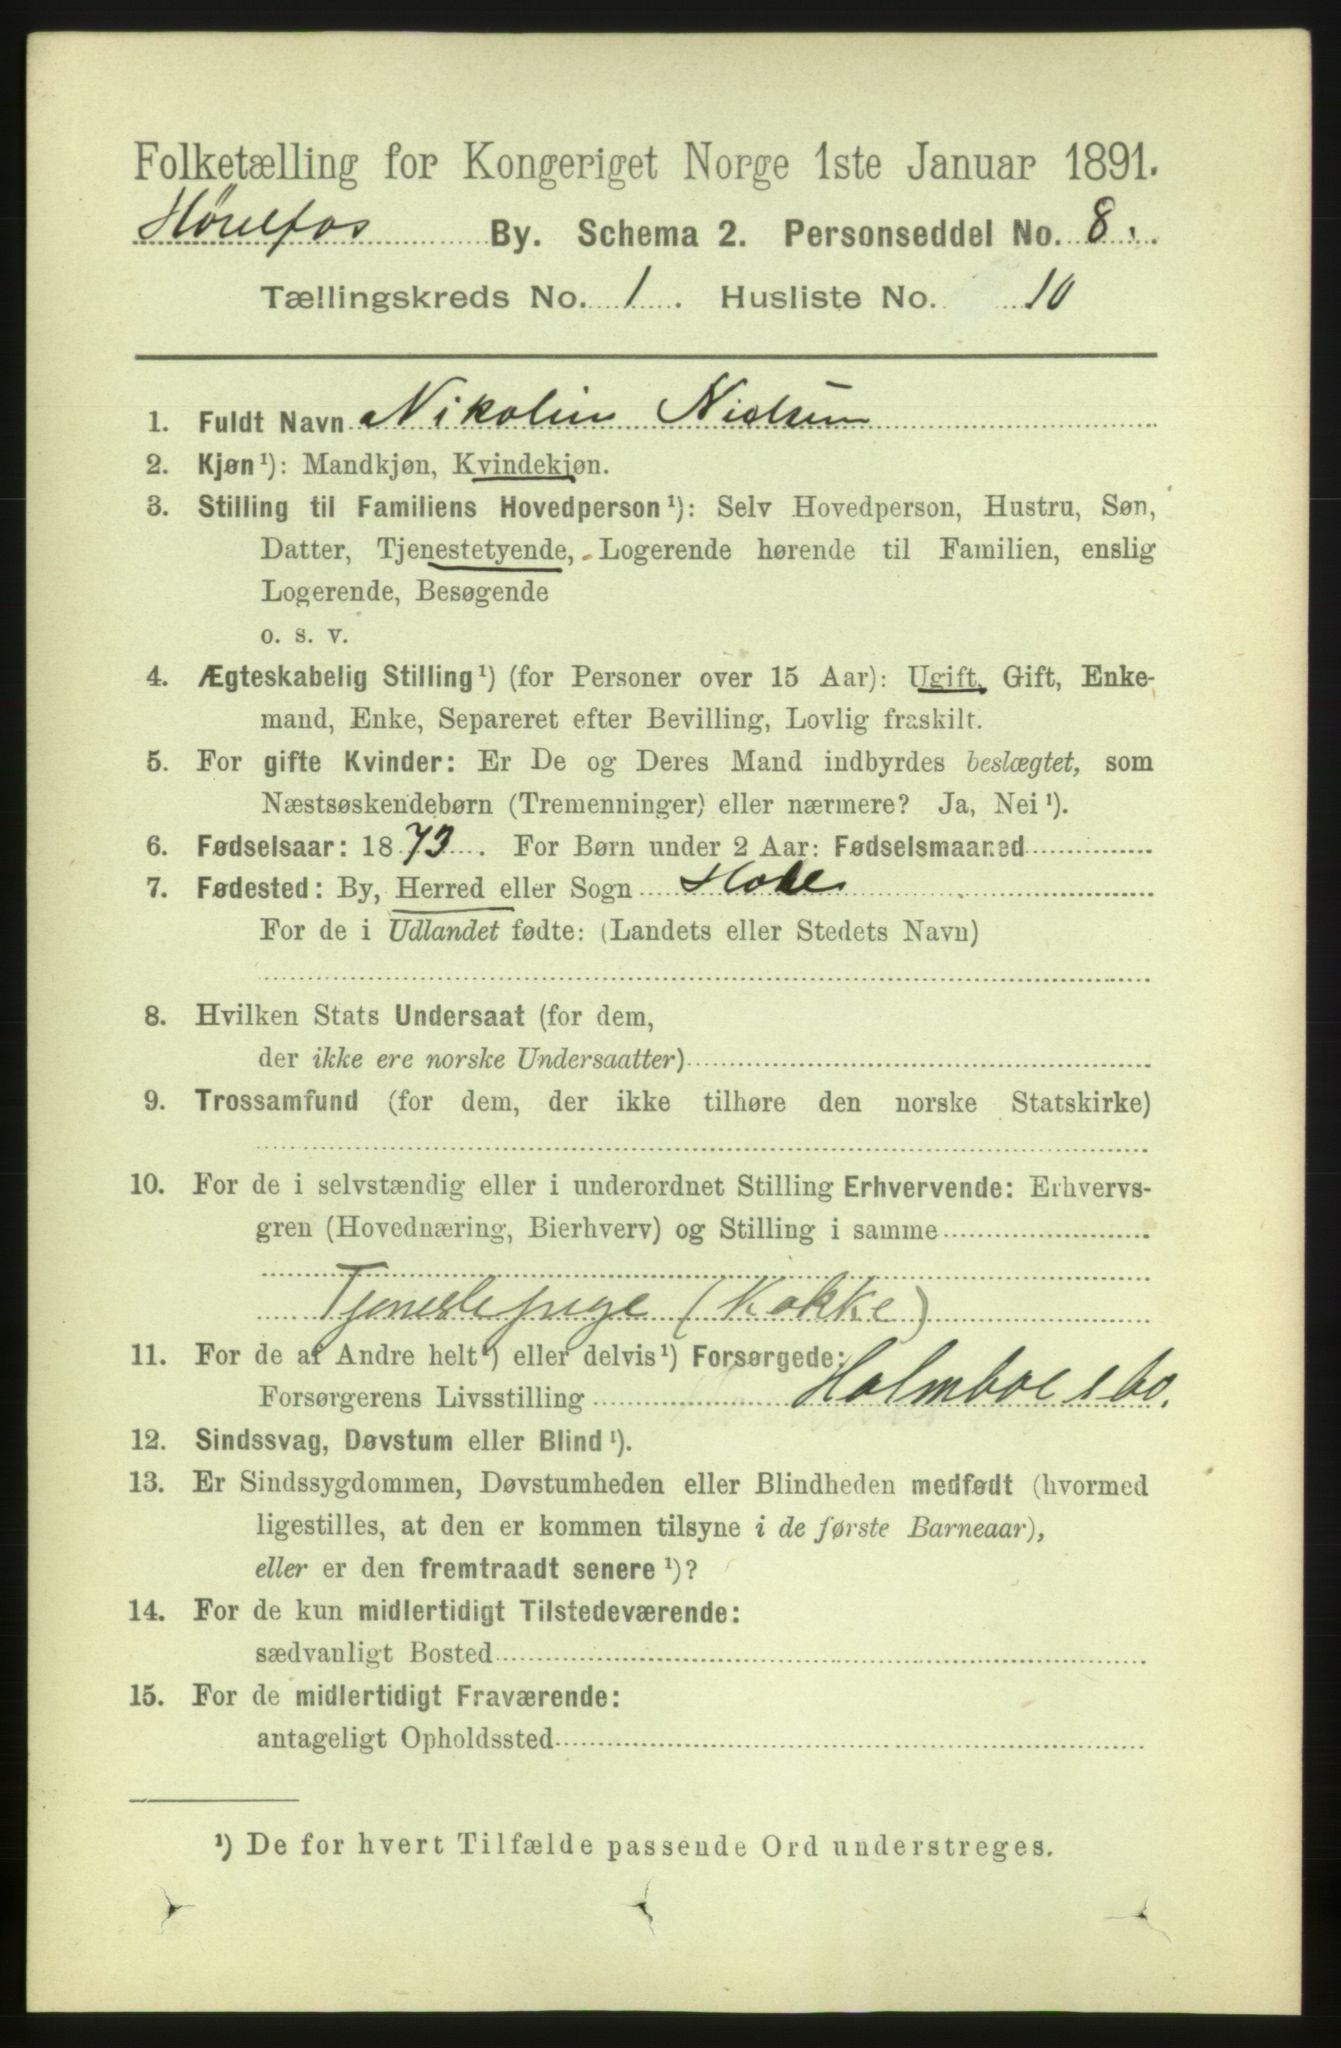 Folketælling for Kongeriget Norge 1ste Januar 1891.
Hønefos By. Schema 2. Personseddel No. 8.
Tællingskreds No. 1. Husliste No. 10
1. Fuldt Navn Nikolin Nielsen
2. Kjøn¹): Mandkjøn, Kvindekjøn.
3. Stilling til Familiens Hovedperson¹): Selv Hovedperson, Hustru, Søn,
Datter, Tjenestetyende, Logerende hørende til Familien, enslig
Logerende, Besøgende
o. s. v.
4. Ægteskabelig Stilling¹) (for Personer over 15 Aar): Ugift, Gift, Enke-
mand, Enke, Separeret efter Bevilling, Lovlig fraskilt.
5. For gifte Kvinder: Er De og Deres Mand indbyrdes beslægtet, som
Næstsøskendebørn (Tremenninger) eller nærmere? Ja, Nei¹).
6. Fødselsaar: 1873. For Børn under 2 Aar: Fødselsmaaned
7. Fødested: By, Herred eller Sogn Hole
For de i Udlandet fødte: (Landets eller Stedets Navn)
8. Hvilken Stats Undersaat (for dem,
der ikke ere norske Undersaatter)
9. Trossamfund (for dem, der ikke tilhøre den norske Statskirke)
10. For de i selvstændig eller i underordnet Stilling Erhvervende: Erhvervs-
gren (Hovednæring, Bierhverv) og Stilling i samme
Tjenestepige (Kokke)
11. For de af Andre helt¹) eller delvis¹) Forsørgede:
Forsørgerens Livsstilling Holmboe
12. Sindssvag, Døvstum eller Blind¹).
13. Er Sindssygdommen, Døvstumheden eller Blindheden medfødt (hvormed
ligestilles, at den er kommen tilsyne i de første Barneaar),
eller er den fremtraadt senere¹)?
14. For de kun midlertidigt Tilstedeværende:
sædvanligt Bosted
15. For de midlertidigt Fraværende:
antageligt Opholdssted
¹) De for hvert Tilfælde passende Ord understreges.